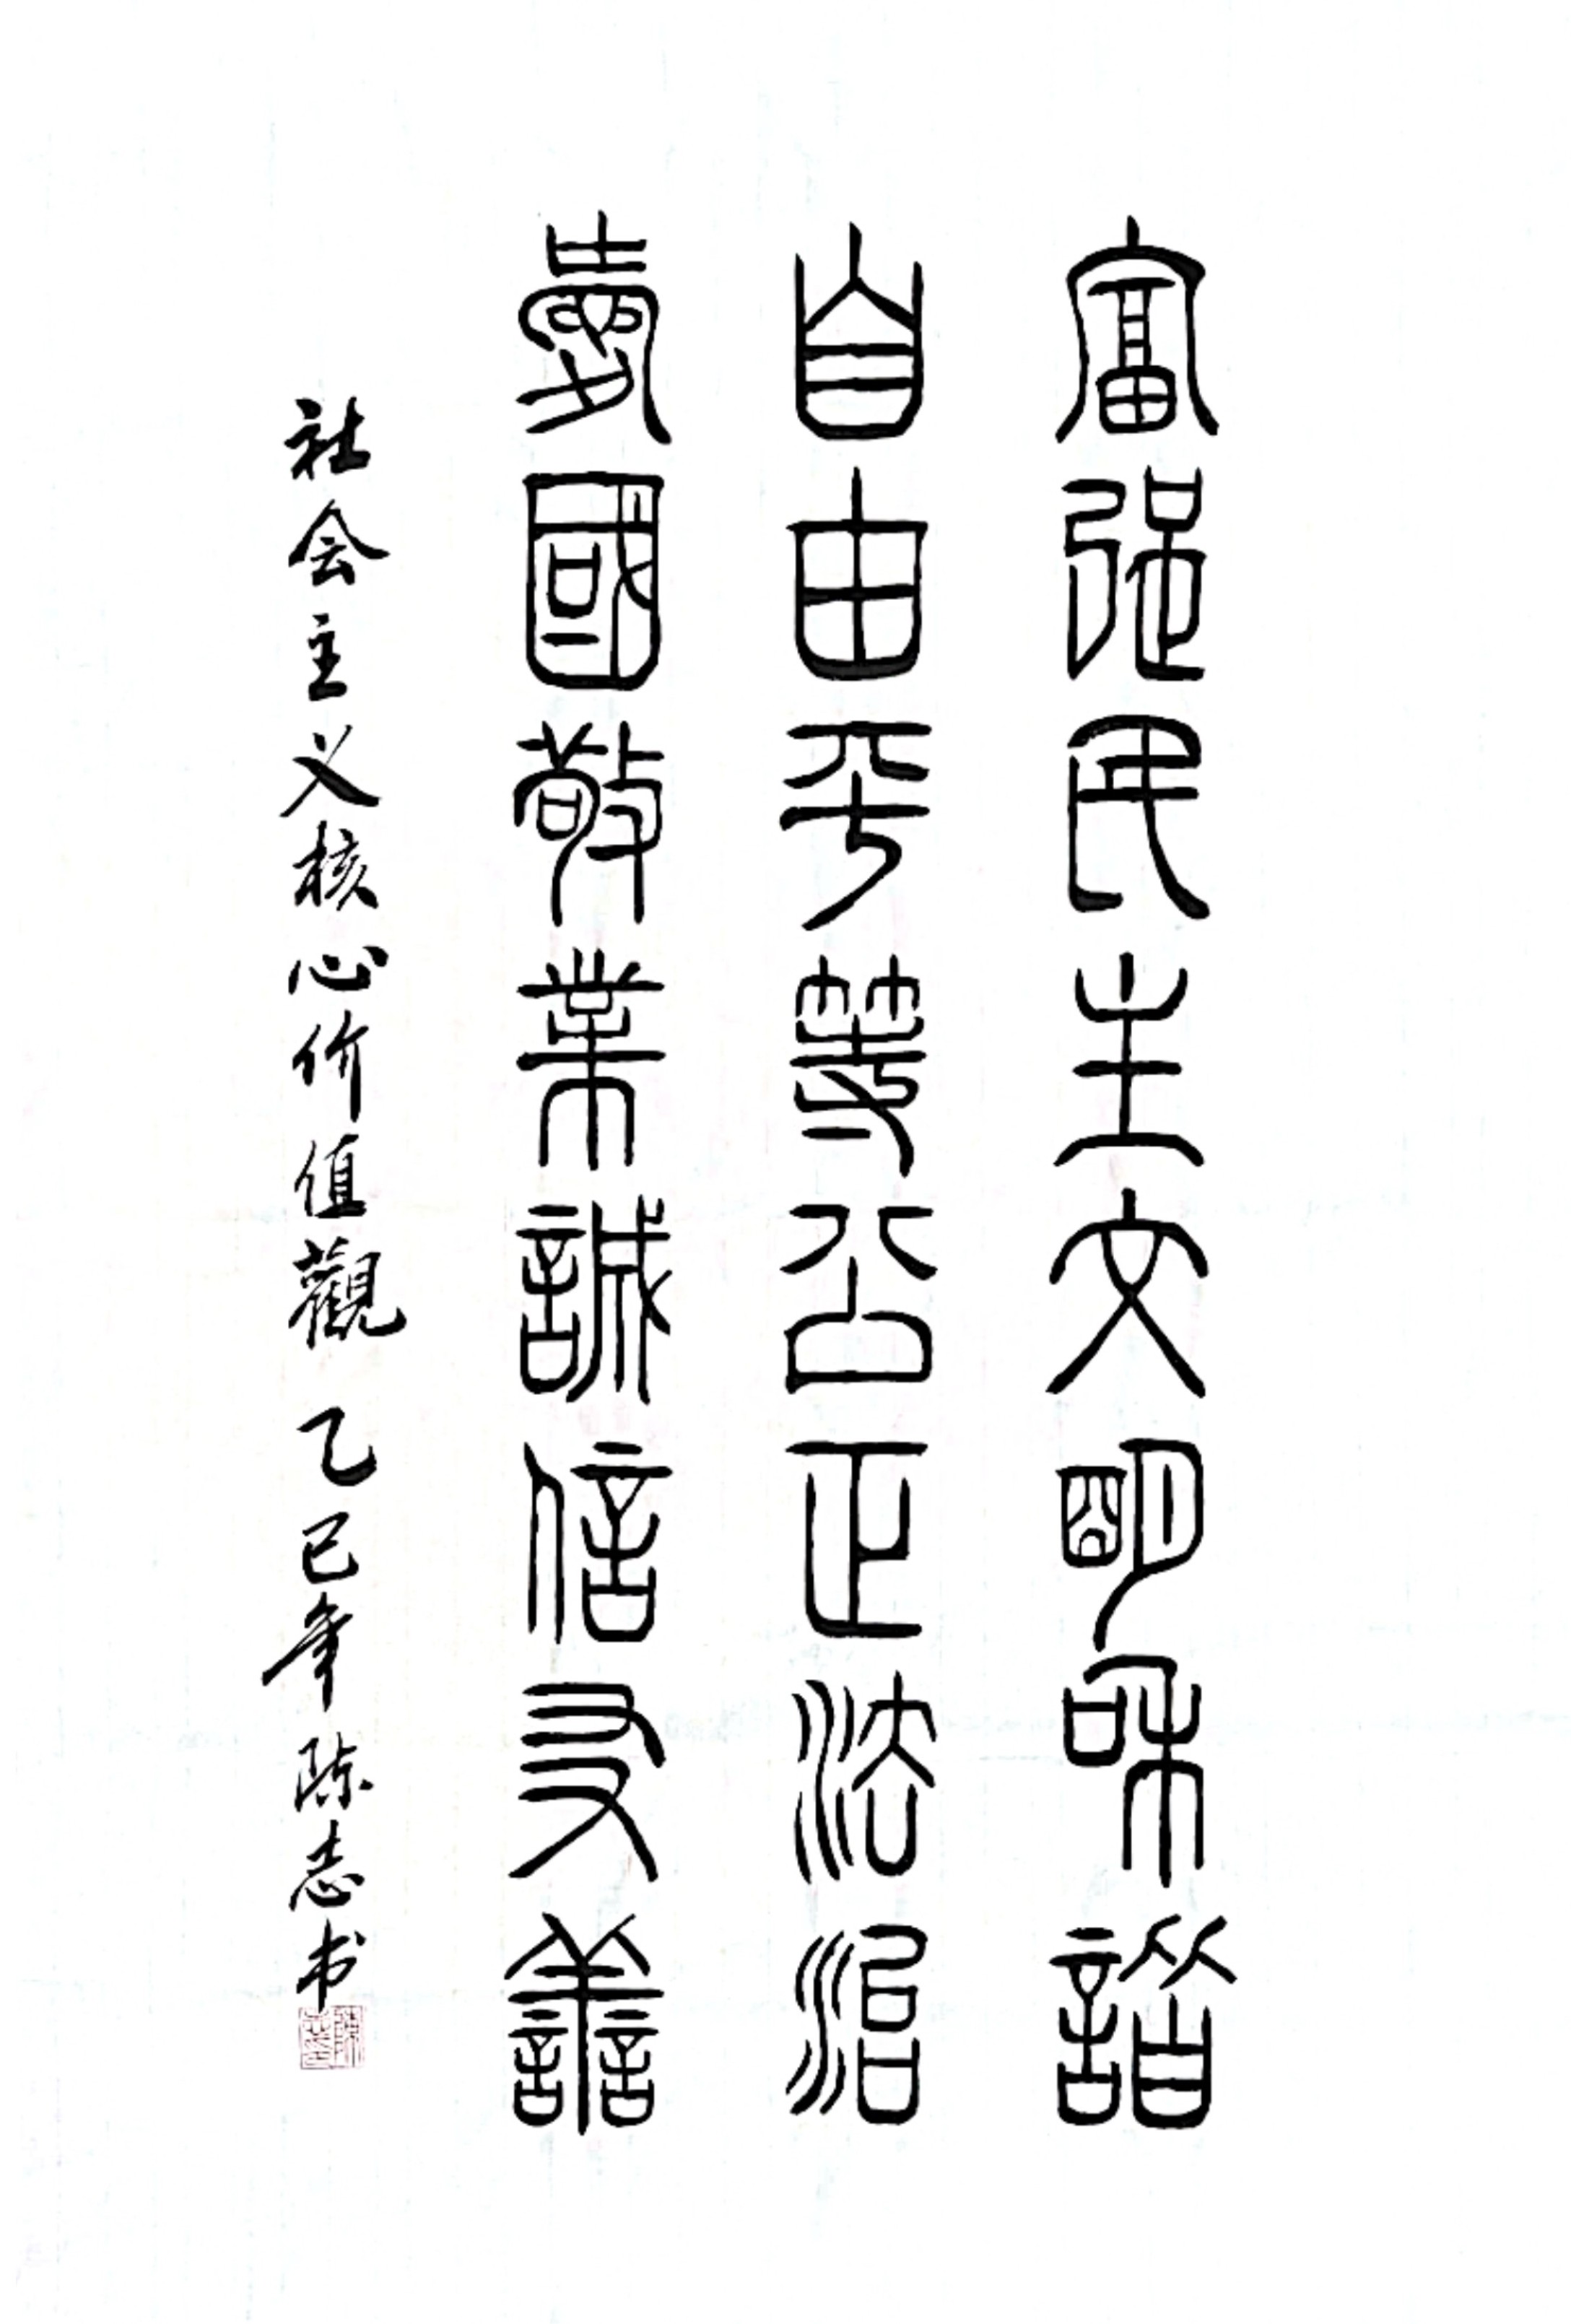 富强民主文明和諧
自由平等公正法治
愛國敬業誠信友善
社会主义核心价值觀 乙巳年 陈志书